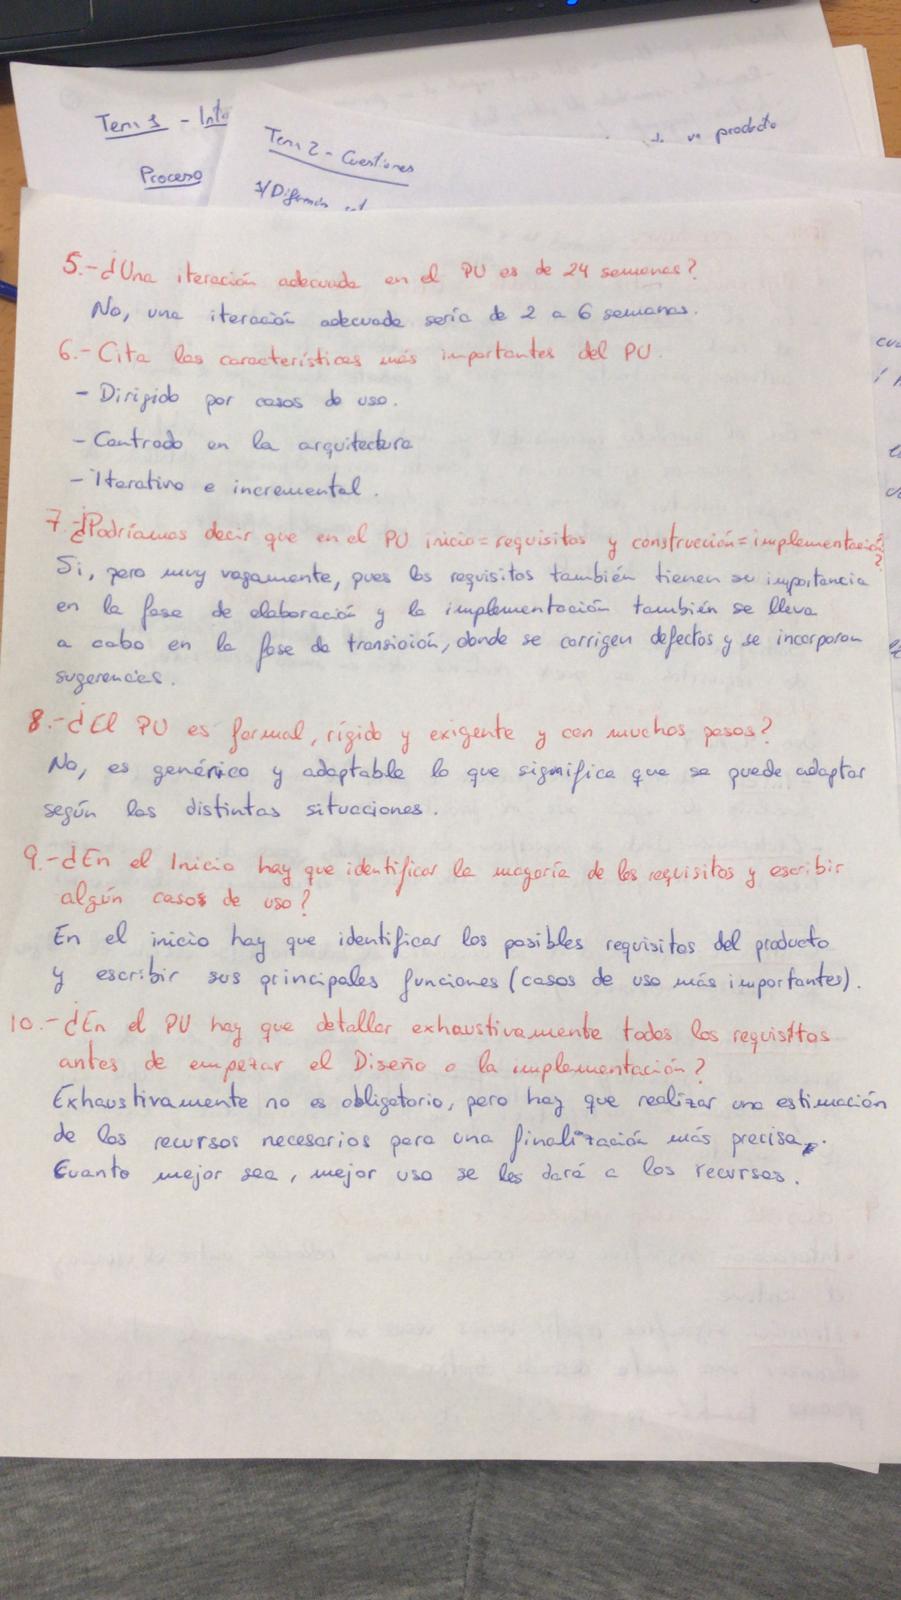 Tema 1 - Into
Proceso
Tema 2 - Cuestiones
1/
un producto
5.- ¿Una iteración adecuada en el PU es de 24 semanas?
No, una iteración adecuada sería de 2 a 6 semanas.
6.- Cita las características más importantes del PU.
- Dirigido por casos de uso.
- Centrado en la arquitectura
- Iterativo e incremental.
7.- ¿Podríamos decir que en el PU inicio = requisitos y construcción = implementación?
Si, pero muy vagamente, pues los requisitos también tienen su importancia
en la fase de elaboración y la implementación también se lleva
a cabo en la fase de transición, donde se corrigen defectos y se incorporan
sugerencias.
8.- ¿El PU es formal, rígido y exigente y con muchos pasos?
No, es genérico y adaptable lo que significa que se puede adaptar
según las distintas situaciones.
9.- ¿En el Inicio hay que identificar la mayoría de los requisitos y escribir
algún casos de uso?
En el inicio hay que identificar los posibles requisitos del producto
y escribir sus principales funciones (casos de uso más importantes).
10.- ¿En el PU hay que detallar exhaustivamente todos los requisitos
antes de empezar el Diseño o la implementación?
Exhaustivamente no es obligatorio, pero hay que realizar una estimación
de los recursos necesarios para una finalización más precisa.
Cuanto mejor sea, mejor uso se les dará a los recursos.